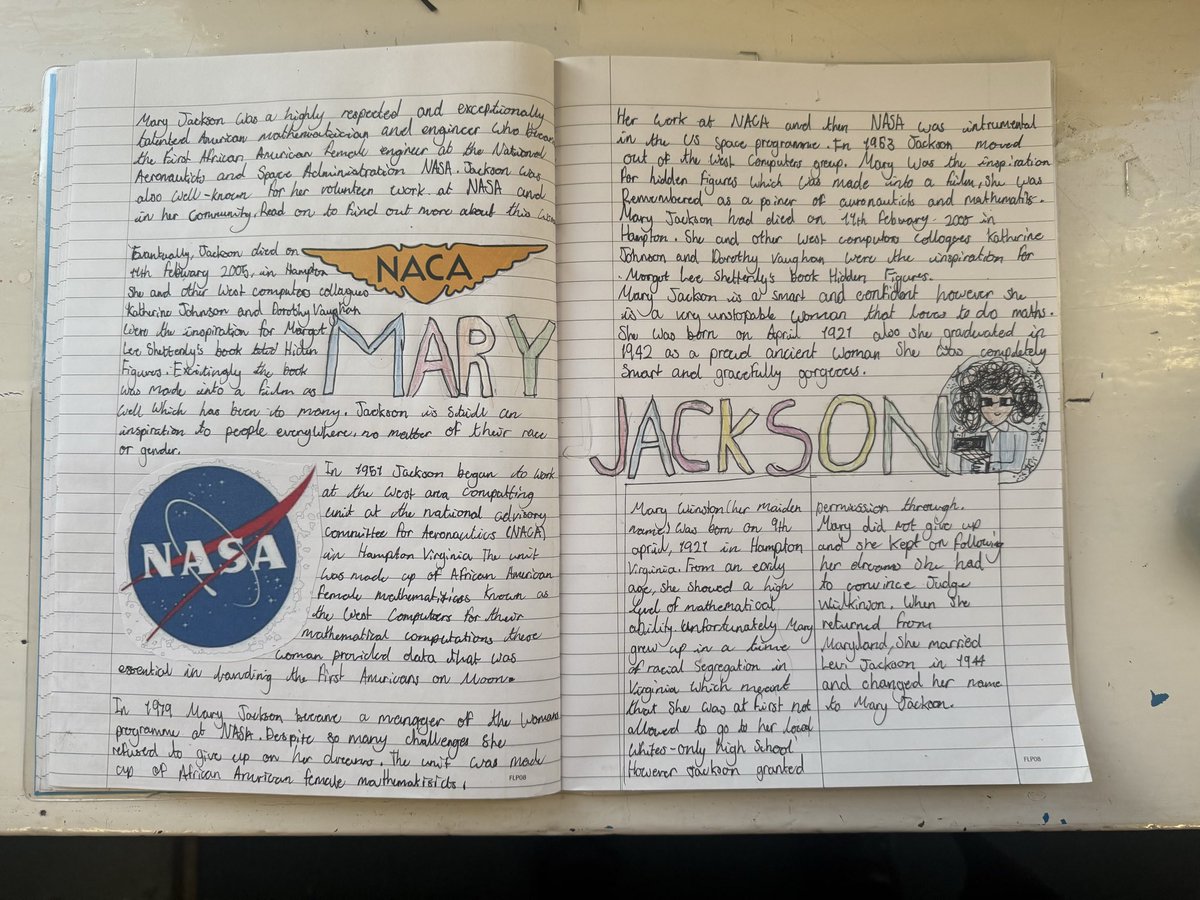 Mary Jackson was a highly respected and exceptionally
talented American mathematician and engineer who became
the first African American female engineer at the National
Aeronautics and Space Administration NASA. Jackson was
also well-known for her volunteer work at NASA and
in her community. Read on to find out more about this
Eventually, Jackson died on
11th February 2005, in Hampton
She and other West computers collagues
Katherine Johnson and Dorothy Vaughan
were the inspiration for Margot
Lee Shetterly's book Hidden
Figures. Excitingly the book
was made into a film as
well which has been to many. Jackson is still an
inspiration to people everywhere, no matter of their race
or gender.
NACA
MARY
NASA
In 1951 Jackson began to work
at the West area computting
unit at the national advisory
committee for Aeronautics (NACA)
in Hampton Virginia The unit
was made up of African American
female mathematicias known as
the West Computers for their
mathematical computations these
woman provided data that was
essential in landing the first Americans on Moon.
In 1979 Mary Jackson became a mangeger of the womans
programme at NASA. Despite so many challenges she
refused to give up on her dreams. The unit was made
up of African American female mathematisicts.
FLP08
Her work at NACA and then NASA was intrumental
in the US space programme. In 1953 Jackson moved
out of the West Computers group. Mary was the inspiration
for hidden figures which was made into a film, She was
Remembered as a poiner of aeronautics and mathmatis.
Mary Jackson had died on 11th febuary 2005 in
Hampton. She and other West computors collogues Katherine
Johnson and Dorothy Vaughan were the inspiration for
Morgot Lee Shetterly's book Hidden Figures.
Mary Jackson is a smart and confident however she
is a very unstopable woman that loves to do maths.
She was born on April 1921 also she graduated in
1942 as a proud ancient woman She was completely
smart and gracefully gorgeous.
JACKSON
Mary Winston (her maiden
name) was born on 9th
april, 1921 in Hampton
Virginia. From an early
age, she showed a high
level of mathematical
ability. Unfortunately Mary
grew up in a time
of racial Segregation in
Virginia which meant
that she was at first not
allowed to go to her local
Whites-only High School
However Jackson granted
permission through.
Mary did not give up
and she kept on following
her dreams She had
to convince Judge
When she
returned from
Maryland, She married
Levi Jackson in 1944
and changed her name
to Mary Jackson.
FLP08